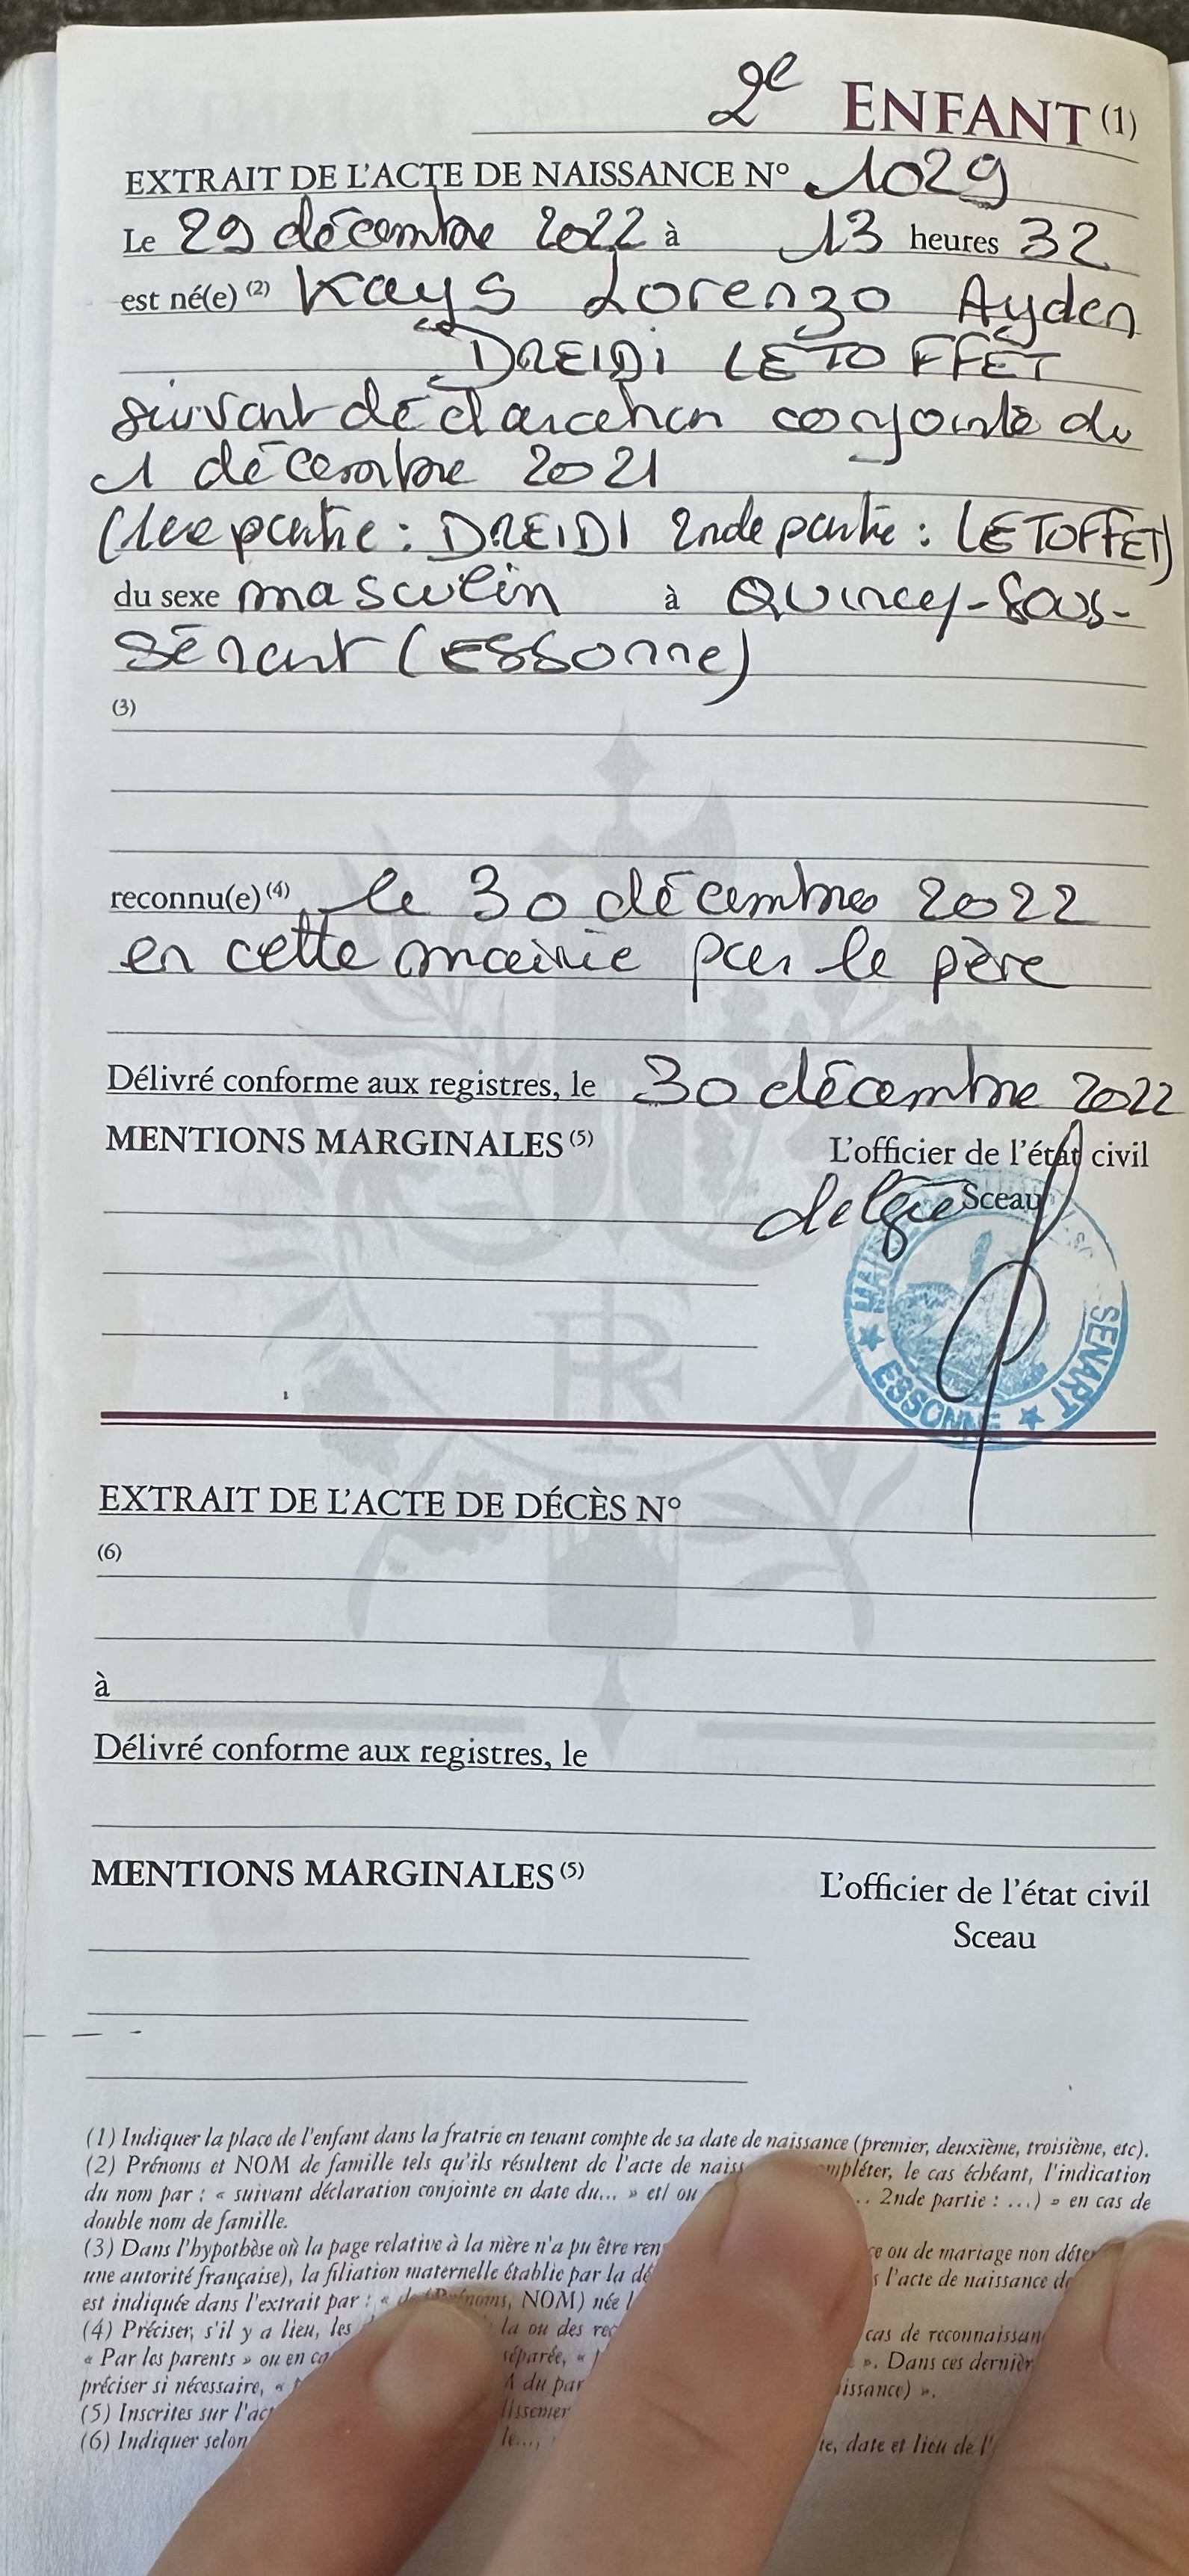 2e ENFANT (1)
EXTRAIT DE L'ACTE DE NAISSANCE N° 1029
Le 29 décembre 2022 à 13 heures 32
est né(e) (2) Kays Lorenzo Ayden
DREIDI LETOFFET
suivant déclaration conjointe du
1 décembre 2021
(1ere partie : DREIDI 2nde partie : LETOFFET)
du sexe masculin à Quincy-sous-
Sénart (Essonne)
(3)
reconnu(e) (4) le 30 décembre 2022
en cette mairie par le père
Délivré conforme aux registres, le 30 décembre 2022
MENTIONS MARGINALES (5)
L'officier de l'état civil
Sceau
SENART
ESSONNE
EXTRAIT DE L'ACTE DE DÉCÈS N°
(6)
à
Délivré conforme aux registres, le
MENTIONS MARGINALES (5)
L'officier de l'état civil
Sceau
(1) Indiquer la place de l'enfant dans la fratrie en tenant compte de sa date de naissance (premier, deuxième, troisième, etc).
(2) Prénoms et NOM de famille tels qu'ils résultent de l'acte de le cas échéant, l'indication
du nom par : « suivant déclaration conjointe en date du... » et/ ou ... 2nde partie : ...) » en cas de
double nom de famille.
(3) Dans l'hypothèse où la page relative à la mère n'a pu être ou de mariage non
une autorité française), la filiation maternelle établie par la l'acte de naissance
est indiquée dans l'extrait par : « NOM) née
(4) Préciser, s'il y a lieu, les la ou des cas de
« Par les parents » ou en séparée, « ». Dans ces
préciser si nécessaire, « du ».
(5) Inscrites sur
(6) Indiquer selon le..., date et lieu de